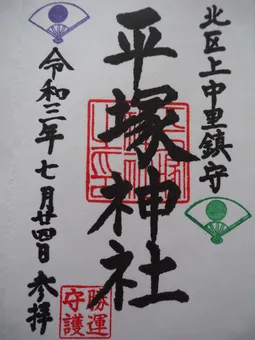 北区上中里鎮守
平塚神社
令和三年七月廿四日参拝
勝運
守護